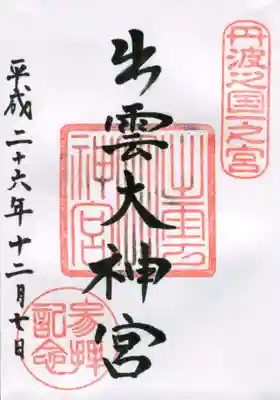 丹波之国一之宮
出雲大神宮
平成二十六年十二月七日
出雲大神宮
参拝記念